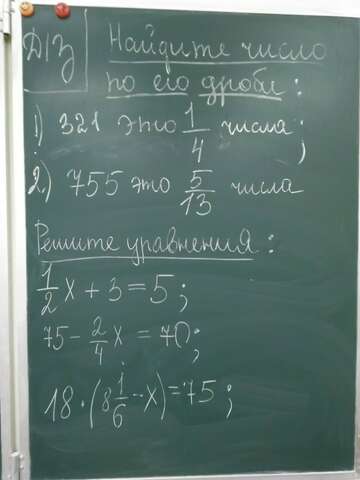 Д/З
Найдите число
по его дроби:
1) 321 это 1/4 числа;
2) 755 это 5/13 числа
Решите уравнения:
1/2 x + 3 = 5;
75 - 2/4 x = 70;
18 · (8 1/6 - x) = 75;